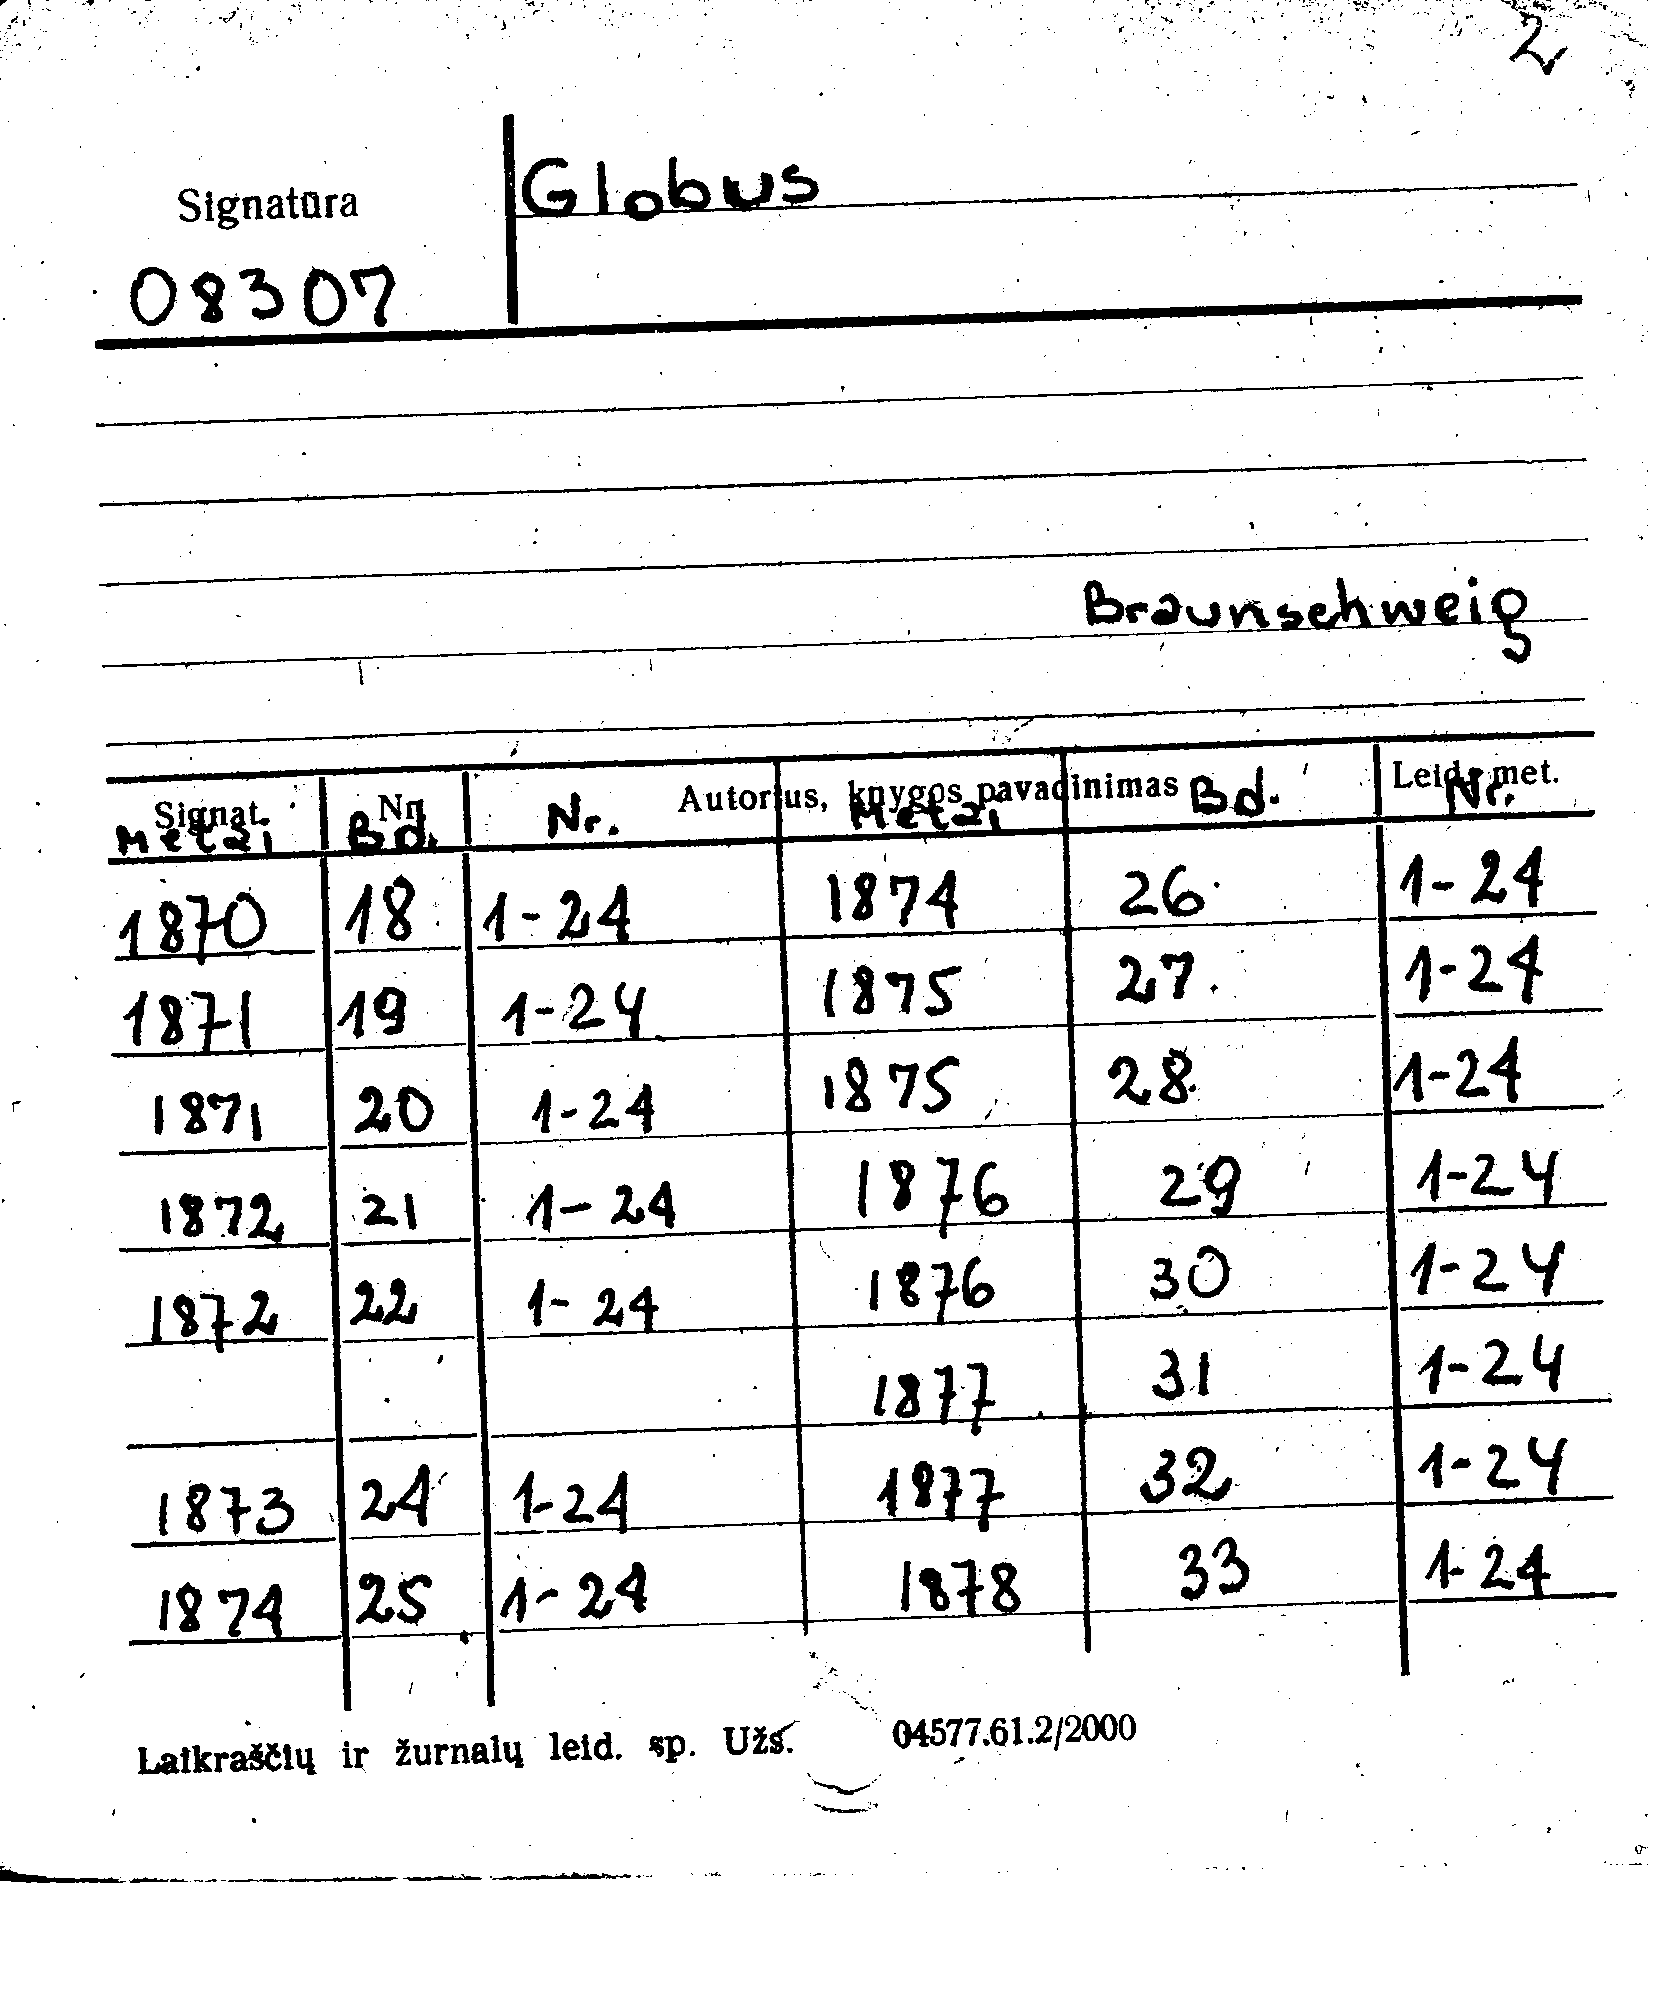 2
Signatūra Globus
08307
Braunschweig
Signat. Nr. Autorius, knygos pavadinimas Leid. met.
Metai Bd. Nr. Metai Bd. Nr.
1870 18 1-24 1874 26 1-24
1871 19 1-24 1875 27. 1-24
1871 20 1-24 1875 28 1-24
1872 21 1-24 1876 29 1-24
1872 22 1-24 1876 30 1-24
1877 31 1-24
1873 24 1-24 1877 32 1-24
1874 25 1-24 1878 33 1-24
Laikraščių ir žurnalų leid. sp. Užs. 04577.61.2/2000